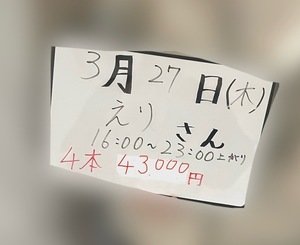 3月27日(木)
えり さん
16:00～23:00上がり
4本 43000円